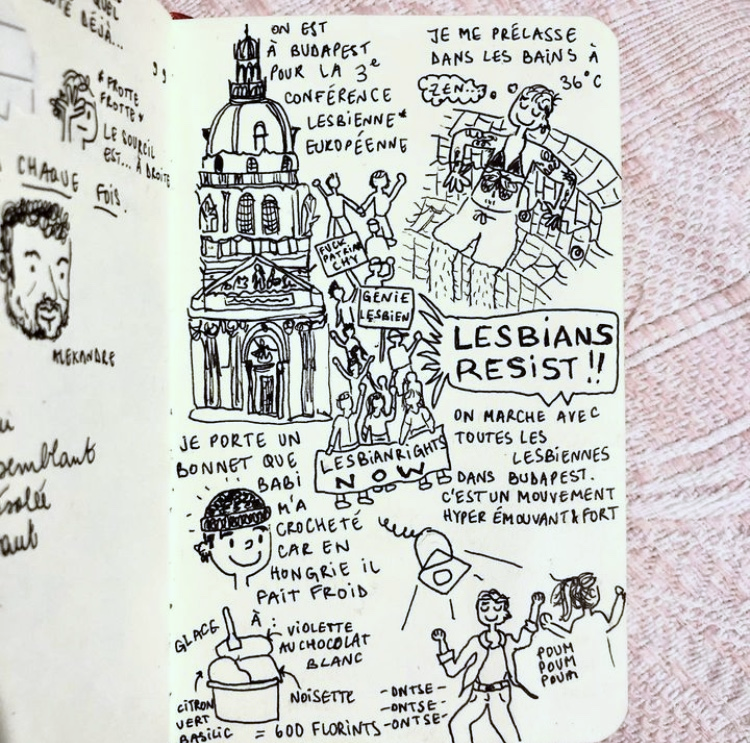 QUEL
DÉJÀ...
* FROTTE
FROTTE *
LE SOURCIL
EST... À DROITE
CHAQUE FOIS.
ALEXANDRE
semblant
ON EST
À BUDAPEST
POUR LA 3e
CONFÉRENCE
LESBIENNE*
EUROPÉENNE
JE ME PRÉLASSE
DANS LES BAINS À
36°C
ZEN...
FUCK
PATRIAR
CHY
GÉNIE
LESBIEN
LESBIANS
RESIST !!
LESBIANRIGHTS
NOW
ON MARCHE AVEC
TOUTES LES
LESBIENNES
DANS BUDAPEST.
C'EST UN MOUVEMENT
HYPER ÉMOUVANT & FORT
JE PORTE UN
BONNET QUE
BABI
M'A
CROCHETÉ
CAR EN
HONGRIE IL
FAIT FROID
GLACE À :
VIOLETTE
AU CHOCOLAT
BLANC
NOISETTE
CITRON
VERT
BASILIC
= 600 FLORINTS
-ONTSE-
-ONTSE-
-ONTSE-
POUM
POUM
POUM